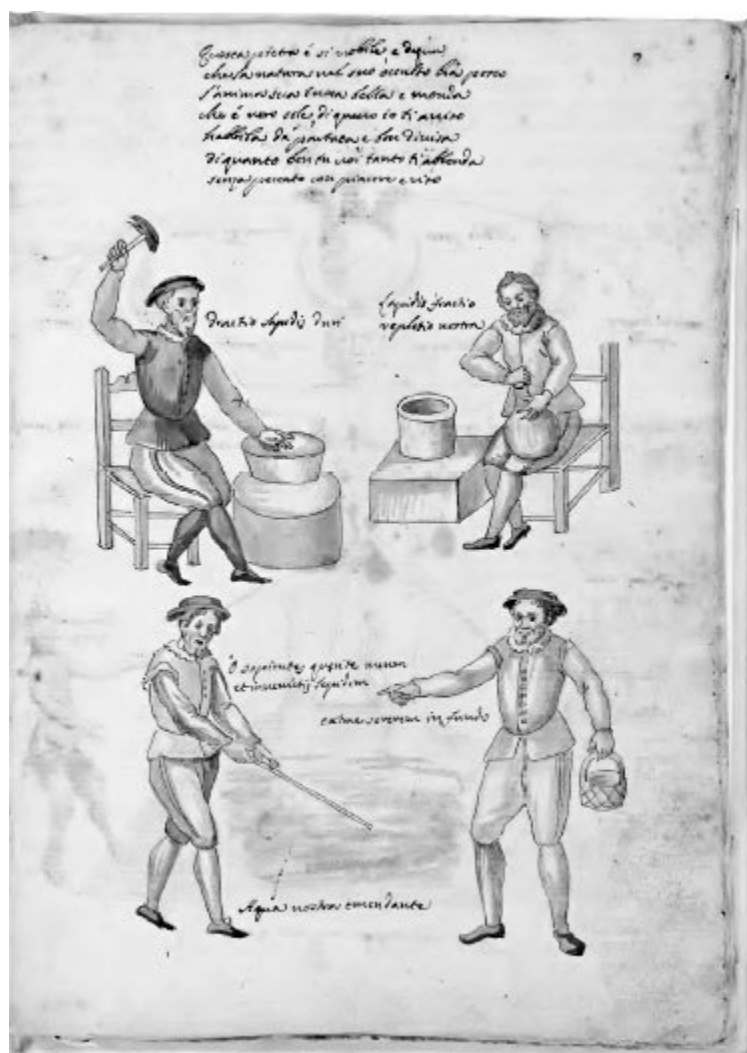 Questa pietra è si nobile e digna
che la natura nel suo occulto hà posto
l'anima sua tutta bella e monda
che è vero sole, di questo io ti aviso
habbila da
di quanto ben tu voi tanto ti abbonda
senza peccato con piacere e riso
Fractio lapidis duri
Lapidis fractio
repletio nostra
O sapientes querite
et invenietis lapidem
in fundo
Aqua nostra emendante